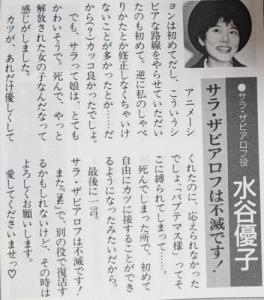 サラ・ザビアロフ役
水谷優子
サラ・ザビアロフは不滅です!
アニメーシ
ョンは初めてだし、こういうシ
ビアな路線をやらせていただい
たのも初めて。逆に私のしゃべ
りかたとか修正しなくちゃいけ
ないことが多かったとか……だ
から？カッコ良かったでしょ。
でも、サラって娘は、とても
かわいそうで。死んで、やっと
解放された女の子なんだなって
感じがしました。
カツが、あれだけ優しくして
くれたのに、応えられなかった
でしょ、「パプテマス様」ってそ
こに縛られてしまって……。
死んでしまった所で、初めて
自由にカツに接することができ
るようになったみたいだから。
最後に一言。
サラ・ザビアロフは不滅です！
また『Z』で、別の役で復活す
るかもしれないけど、その時は
よろしくお願いします。
愛してくださいませっ♡